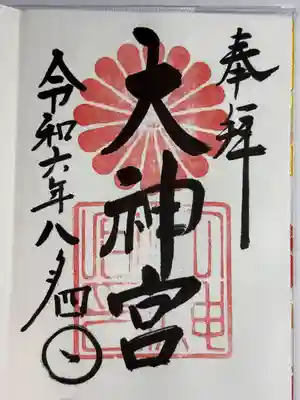 奉拝
大神宮
令和六年八月四